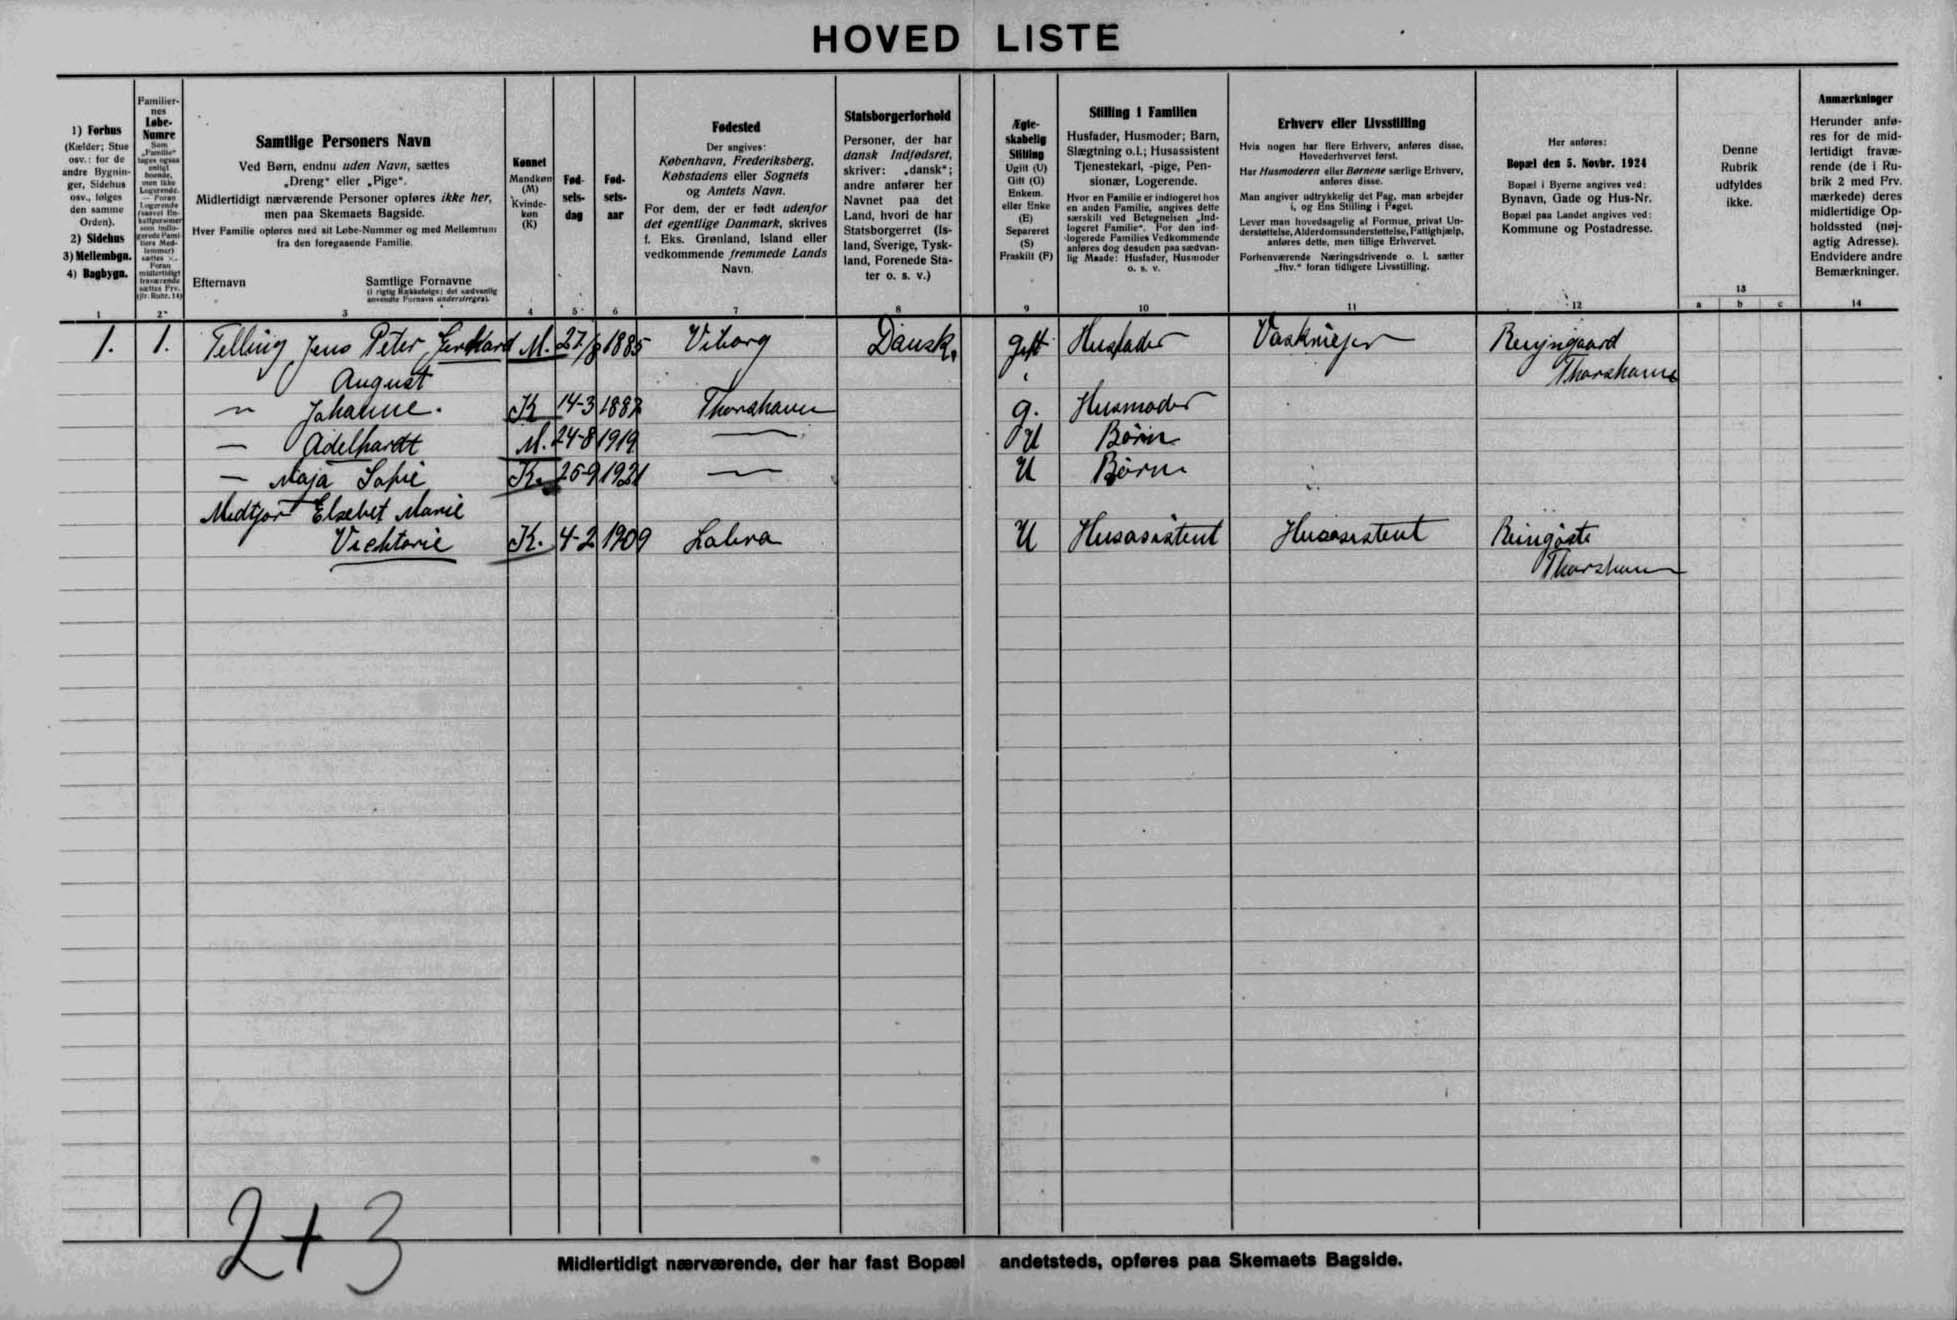 HOVED LISTE
1) Forhus
(Kælder; Stue
osv.: for de
andre Bygnin-
ger, Sidehus
osv., følges
den samme
Orden).
2) Sidehus
3) Mellembgn.
4) Bagbygn.
Familier-
nes
Løbe-
Numre
Samtlige Personers Navn
Ved Børn, endnu uden Navn, sættes
„Dreng“ eller „Pige“.
Midlertidigt nærværende Personer opføres ikke her,
men paa Skemaets Bagside.
Hver Familie opføres med sit Løbe-Nummer og med Mellemrum
fra den foregaaende Familie.
Efternavn
Samtlige Fornavne
(i rigtig Rækkefølge; det sædvanlig
anvendte Fornavn understreges).
Kønnet
Mandkøn
(M)
Kvinde-
køn
(K)
Fød-
sels-
dag
Fød-
sels-
aar
Fødested
Der angives:
København, Frederiksberg,
Købstadens eller Sognets
og Amtets Navn.
For dem, der er født udenfor
det egentlige Danmark, skrives
f. Eks. Grønland, Island eller
vedkommende fremmede Lands
Navn.
Statsborgerforhold
Personer, der har
dansk Indfødsret,
skriver: „dansk“;
andre anfører her
Navnet paa det
Land, hvori de har
Statsborgerret (Is-
land, Sverige, Tysk-
land, Forenede Sta-
ter o. s. v.)
Ægte-
skabelig
Stilling
Ugift (U)
Gift (G)
Enkem.
eller Enke
(E)
Separeret
(S)
Fraskilt (F)
Stilling i Familien
Husfader, Husmoder; Barn,
Slægtning o.l.; Husassistent
Tjenestekarl, -pige, Pen-
sionær, Logerende.
Hvor en Familie er indlogeret hos
en anden Familie, angives dette
særskilt ved Betegnelsen „Ind-
logeret Familie“. For den ind-
logerede Families Vedkommende
anføres dog desuden paa sædvan-
lig Maade: Husfader, Husmoder
o. s. v.
Erhverv eller Livsstilling
Hvis nogen har flere Erhverv, anføres disse,
Hovederhvervet først.
Har Husmoderen eller Børnene særlige Erhverv,
anføres disse.
Man angiver udtrykkelig det Fag, man arbejder
i, og Ens Stilling i Faget.
Lever man hovedsagelig af Formue, privat Un-
derstøttelse, Alderdomsunderstøttelse, Fattighjælp,
anføres dette, men tillige Erhvervet.
Forhenværende Næringsdrivende o. l. sætter
„fhv.“ foran tidligere Livsstilling.
Her anføres:
Bopæl den 5. Novbr. 1924
Bopæl i Byerne angives ved:
Bynavn, Gade og Hus-Nr.
Bopæl paa Landet angives ved:
Kommune og Postadresse.
Denne
Rubrik
udfyldes
ikke.
Anmærkninger
Herunder anfø-
res for de mid-
lertidigt fravæ-
rende (de i Ru-
brik 2 med Frv.
mærkede) deres
midlertidige Op-
holdssted (nøj-
agtig Adresse).
Endvidere andre
Bemærkninger.
1 2 3 4 5 6 7 8 9 10 11 12 13 a b c 14
1. 1. Telling Jens Peter Gerhard M. 27/8 1885 Viborg Dansk. gift Husfader Reynsgaard
August Thorshavn
" Johanne. K 14-3 1887 Thorshavn g. Husmoder
— Adelhardt M. 24-8 1919 — U Børn
— Maja Sofie K. 25-9 1921 — U Børn
Midtjor Elsebet Marie
Vicktorie K. 4-2 1909 U Husasistent Husasistent Reingøte
Thorshavn
2+3
Midlertidigt nærværende, der har fast Bopæl andetsteds, opføres paa Skemaets Bagside.